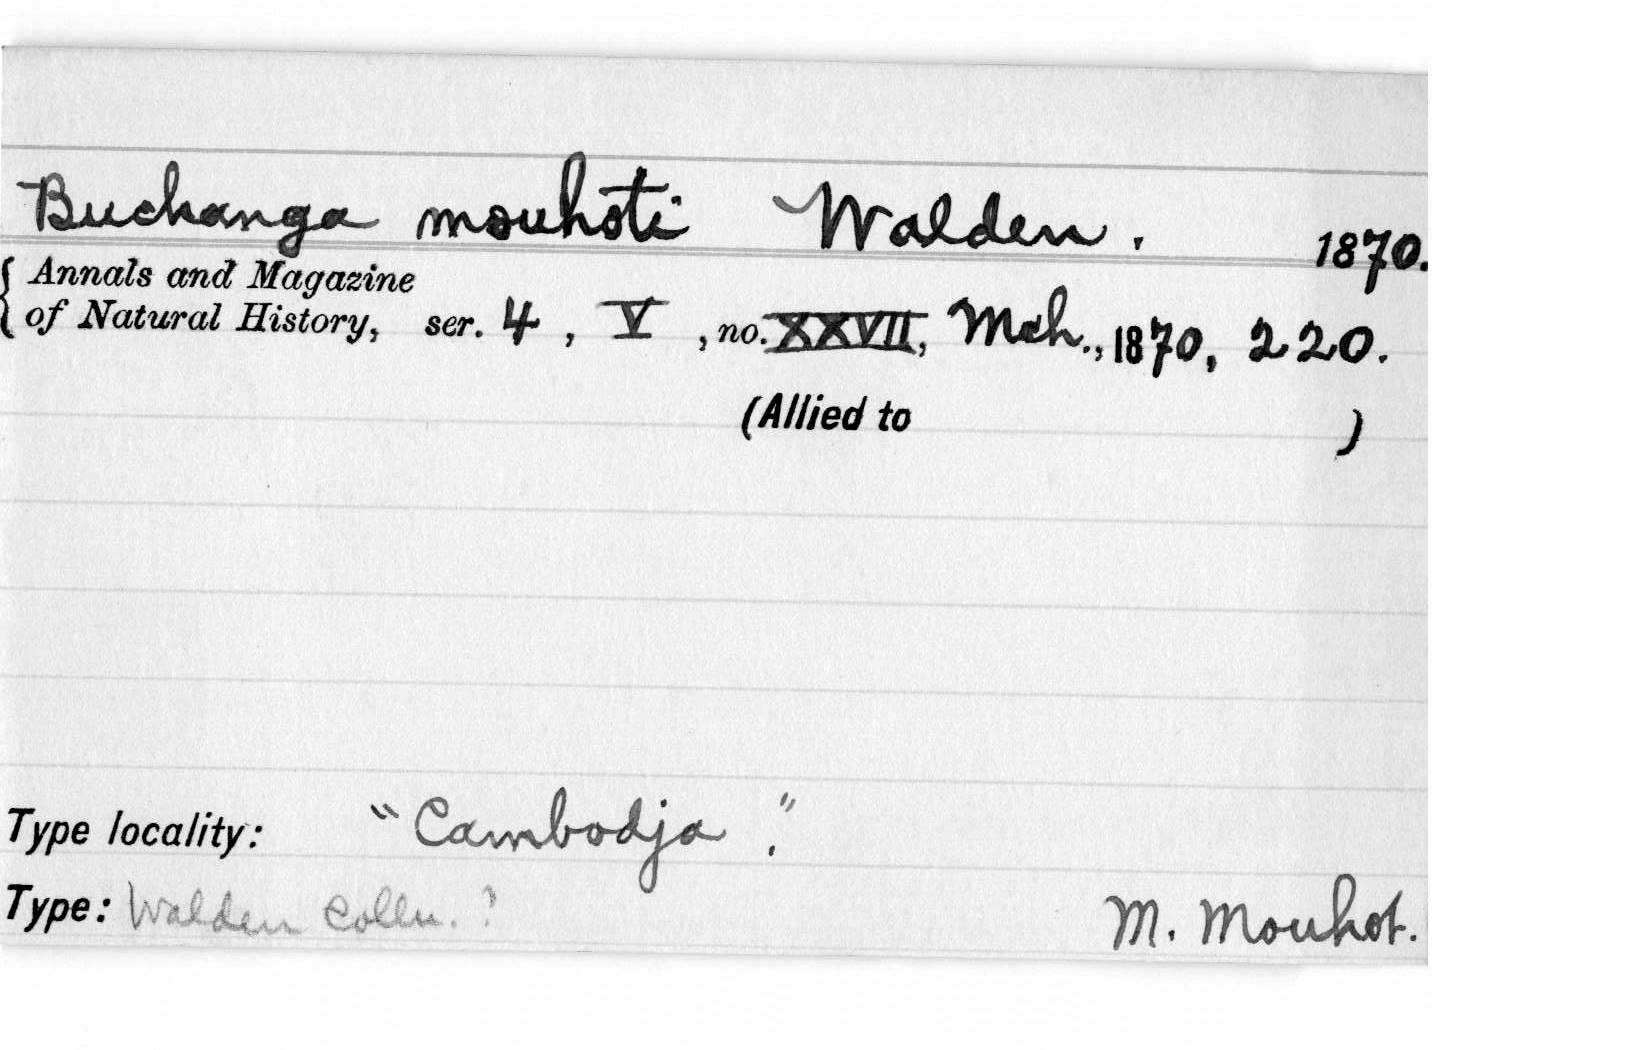 Buchanga mouhoti Walden. 1870.
Annals and Magazine
of Natural History, ser. 4, V, no. XXVII, Mch., 1870, 220.
(Allied to )
Type locality: "Cambodja."
Type: Walden Colln. ? M. Mouhot.